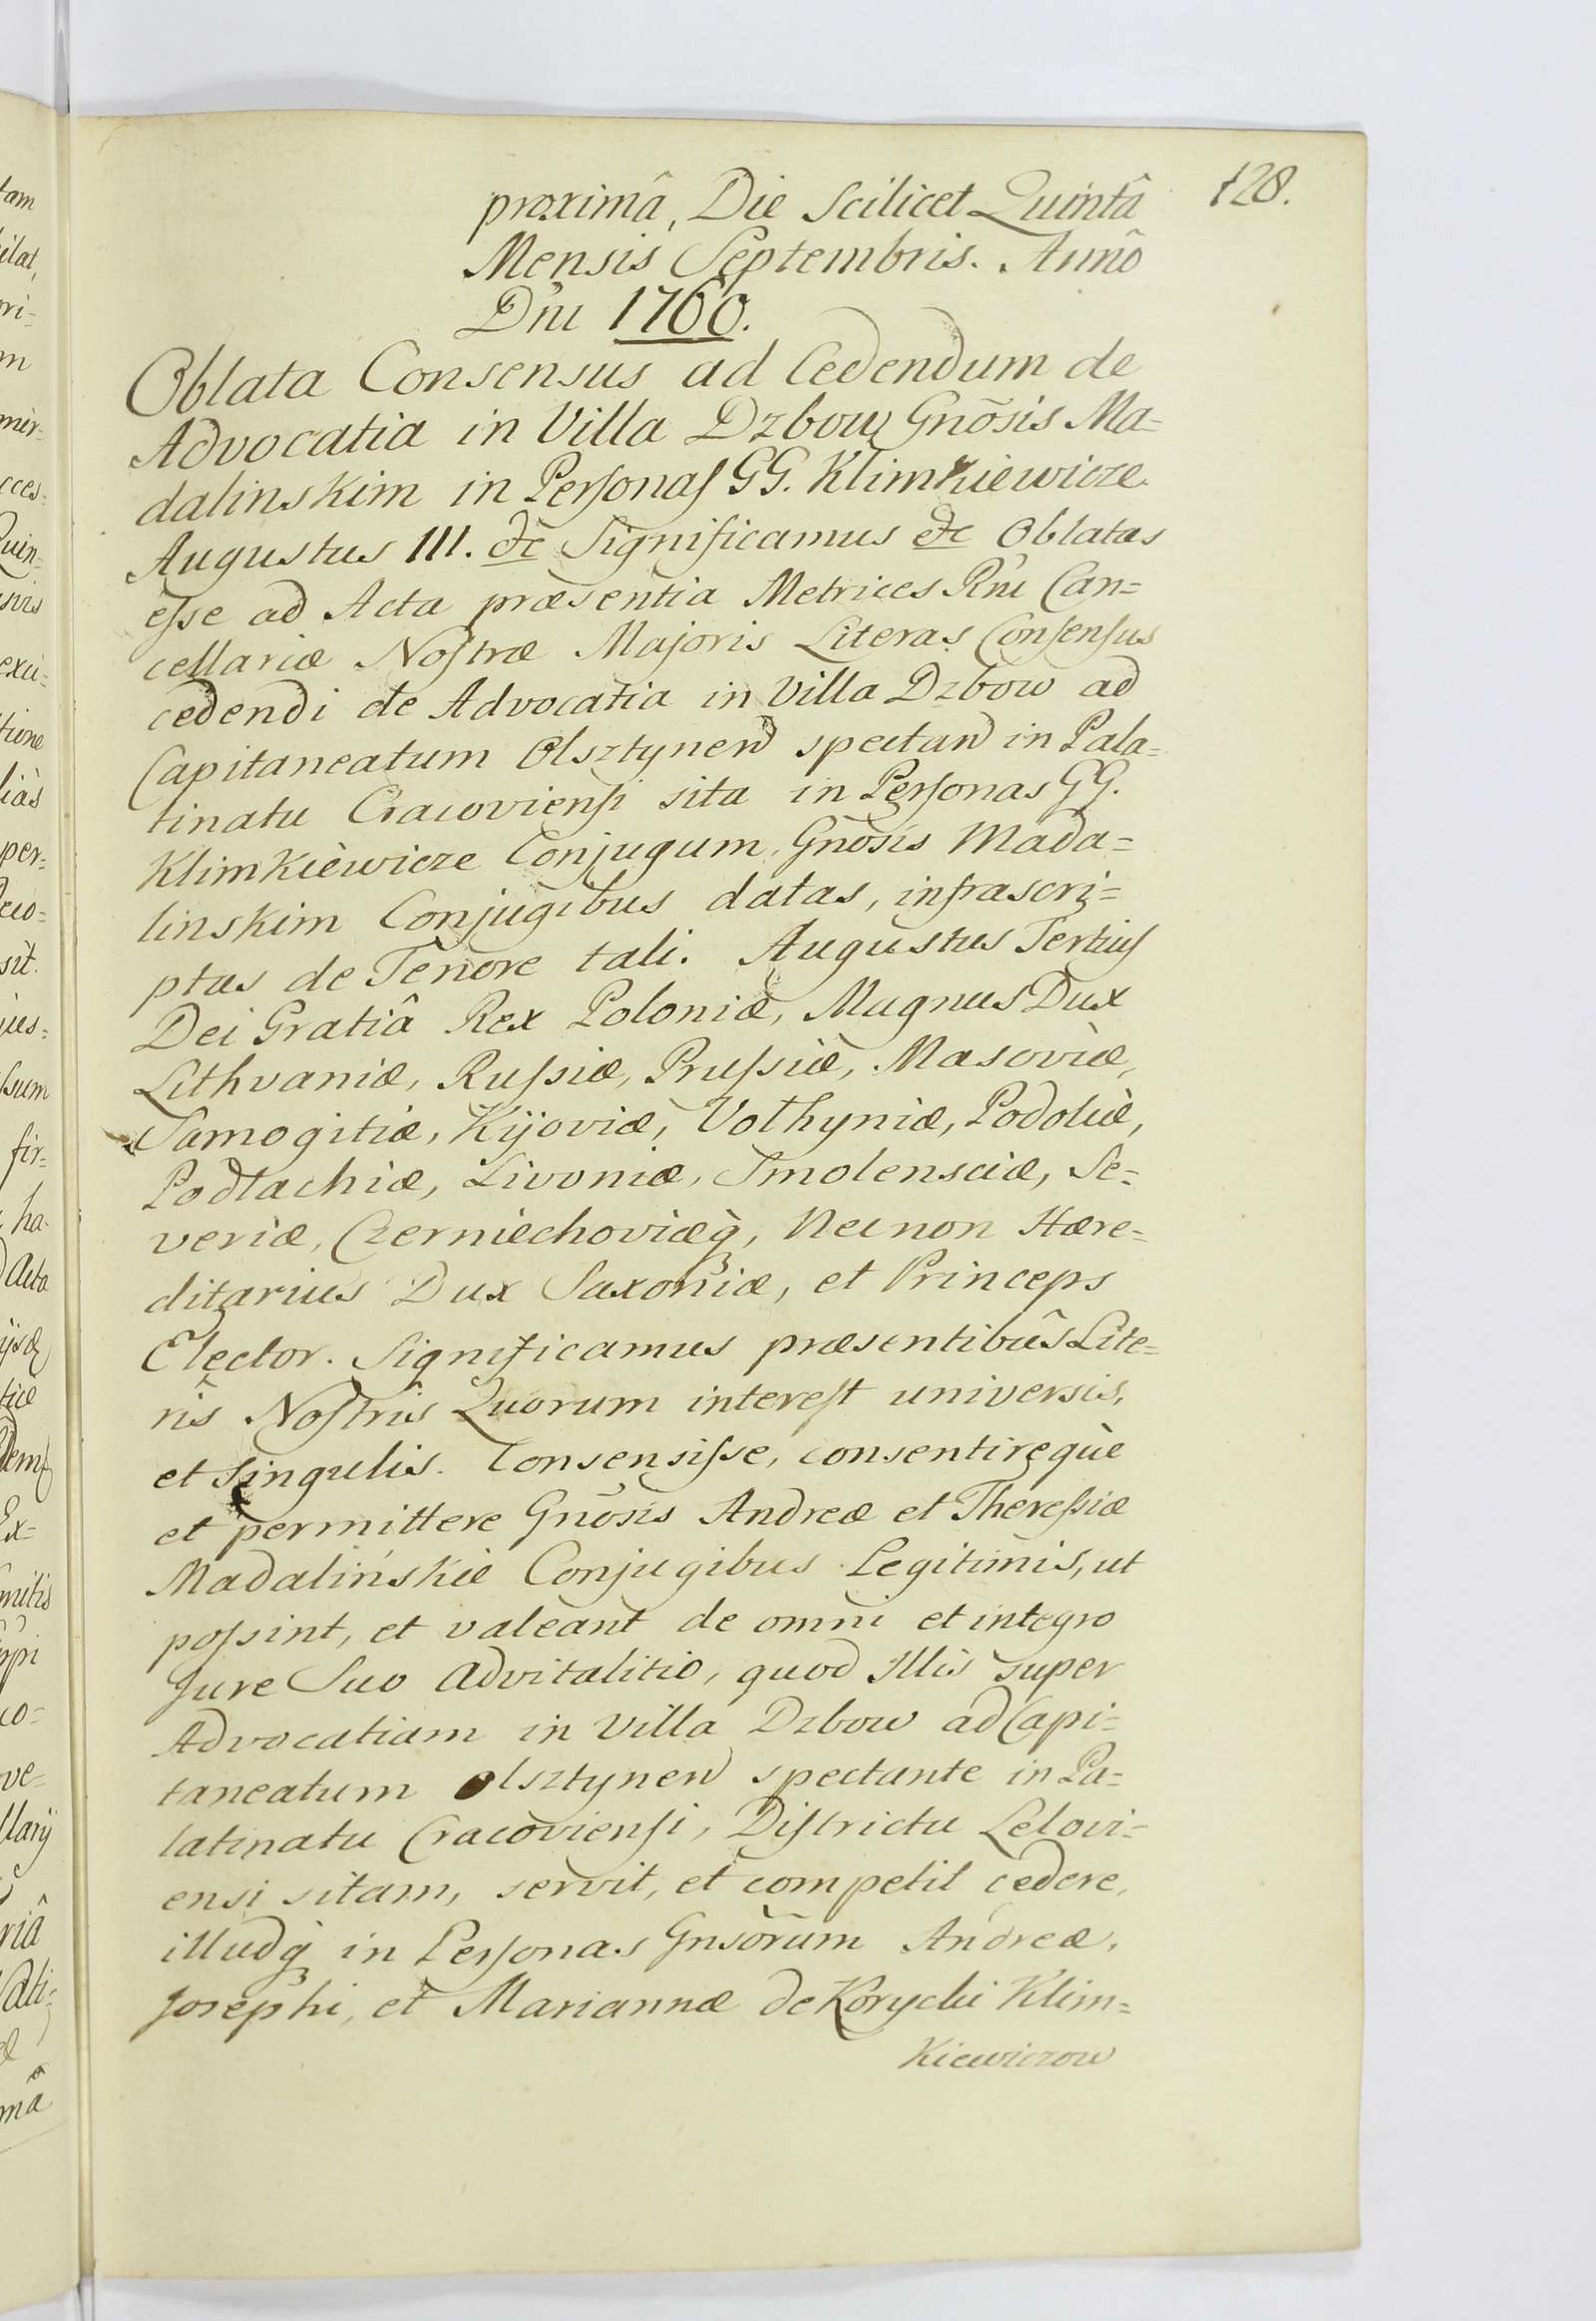 128.
proximâ, Die Scilicet Quintâ
Mensis Septembris. Annô
Dni 1760.
Oblata Consensus ad Cedendum de
Advocatia in Villa Dzbow Gnõsis Ma=
dalinskim in Personas GG. Klimkiewicze
Augustus III. &c Significamus &c Oblatas
esse ad Acta præsentia Metrices Rni Can=
cellariæ Nostræ Majoris Literas Consensus
cedendi de Advocatia in Villa Dzbow ad
Capitaneatum Olsztynen spectan in Pala=
tinatu Cracoviensi sita in Personas GG.
Klimkiewicze Conjugum, Gnõsis Mada=
linskim Conjugibus datas, infrascri=
ptas de Tenore tali. Augustus Tertius
Dei Gratiâ Rex Poloniæ, Magnus Dux
Lithvaniæ, Russiæ, Prussiæ, Masoviæ,
Samogitiæ, Kijoviæ, Volhyniæ, Podoliæ,
Podlachiæ, Livoniæ, Smolensciæ, Se=
veriæ, Czerniechoviæq, Necnon Hære=
ditarius Dux Saxoniæ, et Princeps
Elector. Significamus præsentibûs Lite=
rîs Nostrîs Quorum interest universis,
et singulis. Consensisse, consentireque
et permittere Gnõsis Andreæ et Theresiæ
Madalińskie Conjugibus Legitimis, ut
possint, et valeant de omni et integro
Jure Suo Advitalitio, quod Illis super
Advocatiam in Villa Dzbow ad Capi=
taneatum Olsztynen spectante in Pa=
latinatu Cracoviensi, Districtu Lelovi=
ensi sitam, servit, et competit cedere,
illudq in Personas Gnsõrum Andreæ,
Josephi, et Mariannæ de Koryckie Klim=
Kiewiczow